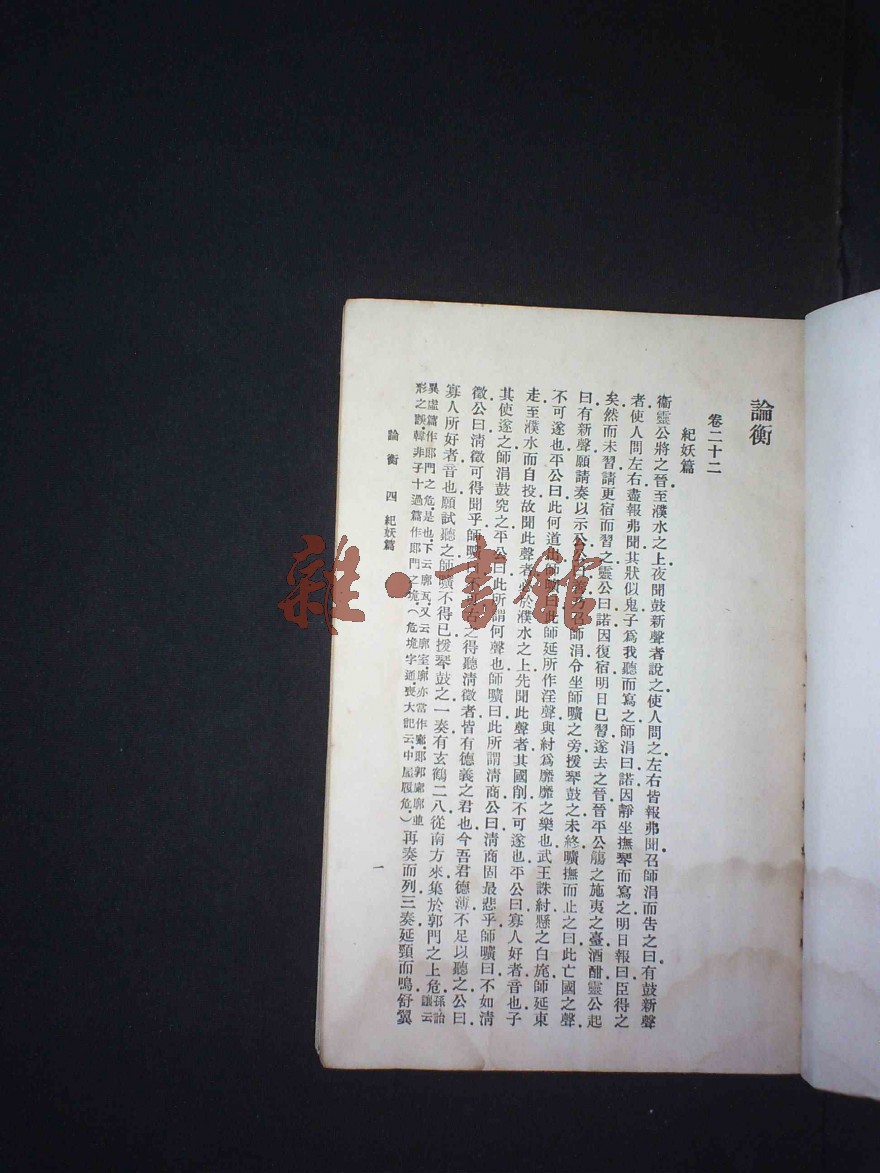 論衡
卷二十二
紀妖篇
衞靈公將之晉至濮水之上夜聞鼓新聲者說之使人問之左右皆報弗聞召師涓而告之曰有鼓新聲
者使人問左右盡報弗聞其狀似鬼子爲我聽而寫之師涓曰諾因靜坐撫琴而寫之明日報曰臣得之
矣然而未習請更宿而習之靈公曰諾因復宿明日已習遂去之晉晉平公觴之施夷之臺酒酣靈公起
曰有新聲願請奏以示公公曰善乃召師涓令坐師曠之旁援琴鼓之未終曠撫而止之曰此亡國之聲
不可遂也平公曰此何道出師曠曰此師延所作淫聲與紂爲靡靡之樂也武王誅紂懸之白旄師延東
走至濮水而自投故聞此聲者必於濮水之上先聞此聲者其國削不可遂也平公曰寡人好者音也子
其使遂之師涓鼓究之平公曰此所謂何聲也師曠曰此所謂淸商公曰淸商固最悲乎師曠曰不如淸
徵公曰淸徵可得聞乎師曠曰不可古之得聽淸徵者皆有德義之君也今吾君德薄不足以聽之公曰
寡人所好者音也願試聽之師曠不得已援琴鼓之一奏有玄鶴二八從南方來集於郭門之上危孫詒讓云
異虛篇作郎門之危是也下云廓瓦又云廓室廓亦當作廊郎郭廊廓並
形之誤韓非子十過篇作郎門之垝(危垝字通喪大記云中屋履危)再奏而列三奏延頸而鳴舒翼
論衡 四 紀妖篇
一
雜·書館